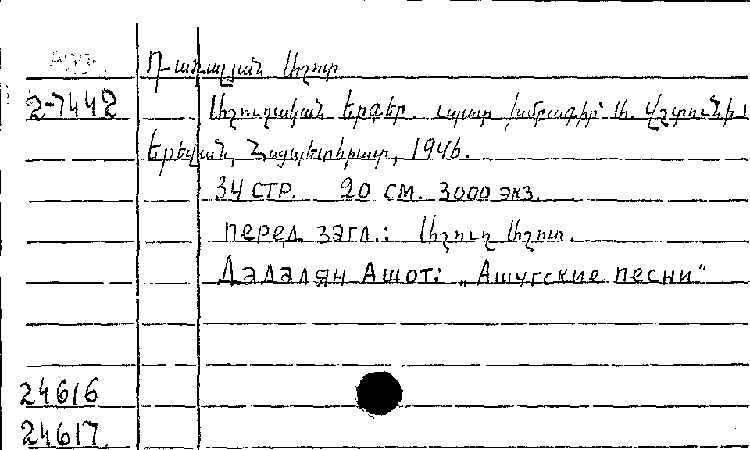 Դադալյան Աշոտ
2-7442 Աշուղական երգեր. պատ. խմբագիր՝ Ա. Վշտունի։
Երեվան, Հայպետհրատ, 1946.
34 стр. 20 см. 3000 экз.
перед загл.: Աշուղ Աշոտ.
Дадалян Ашот: „Ашугские песни“
24616
24617